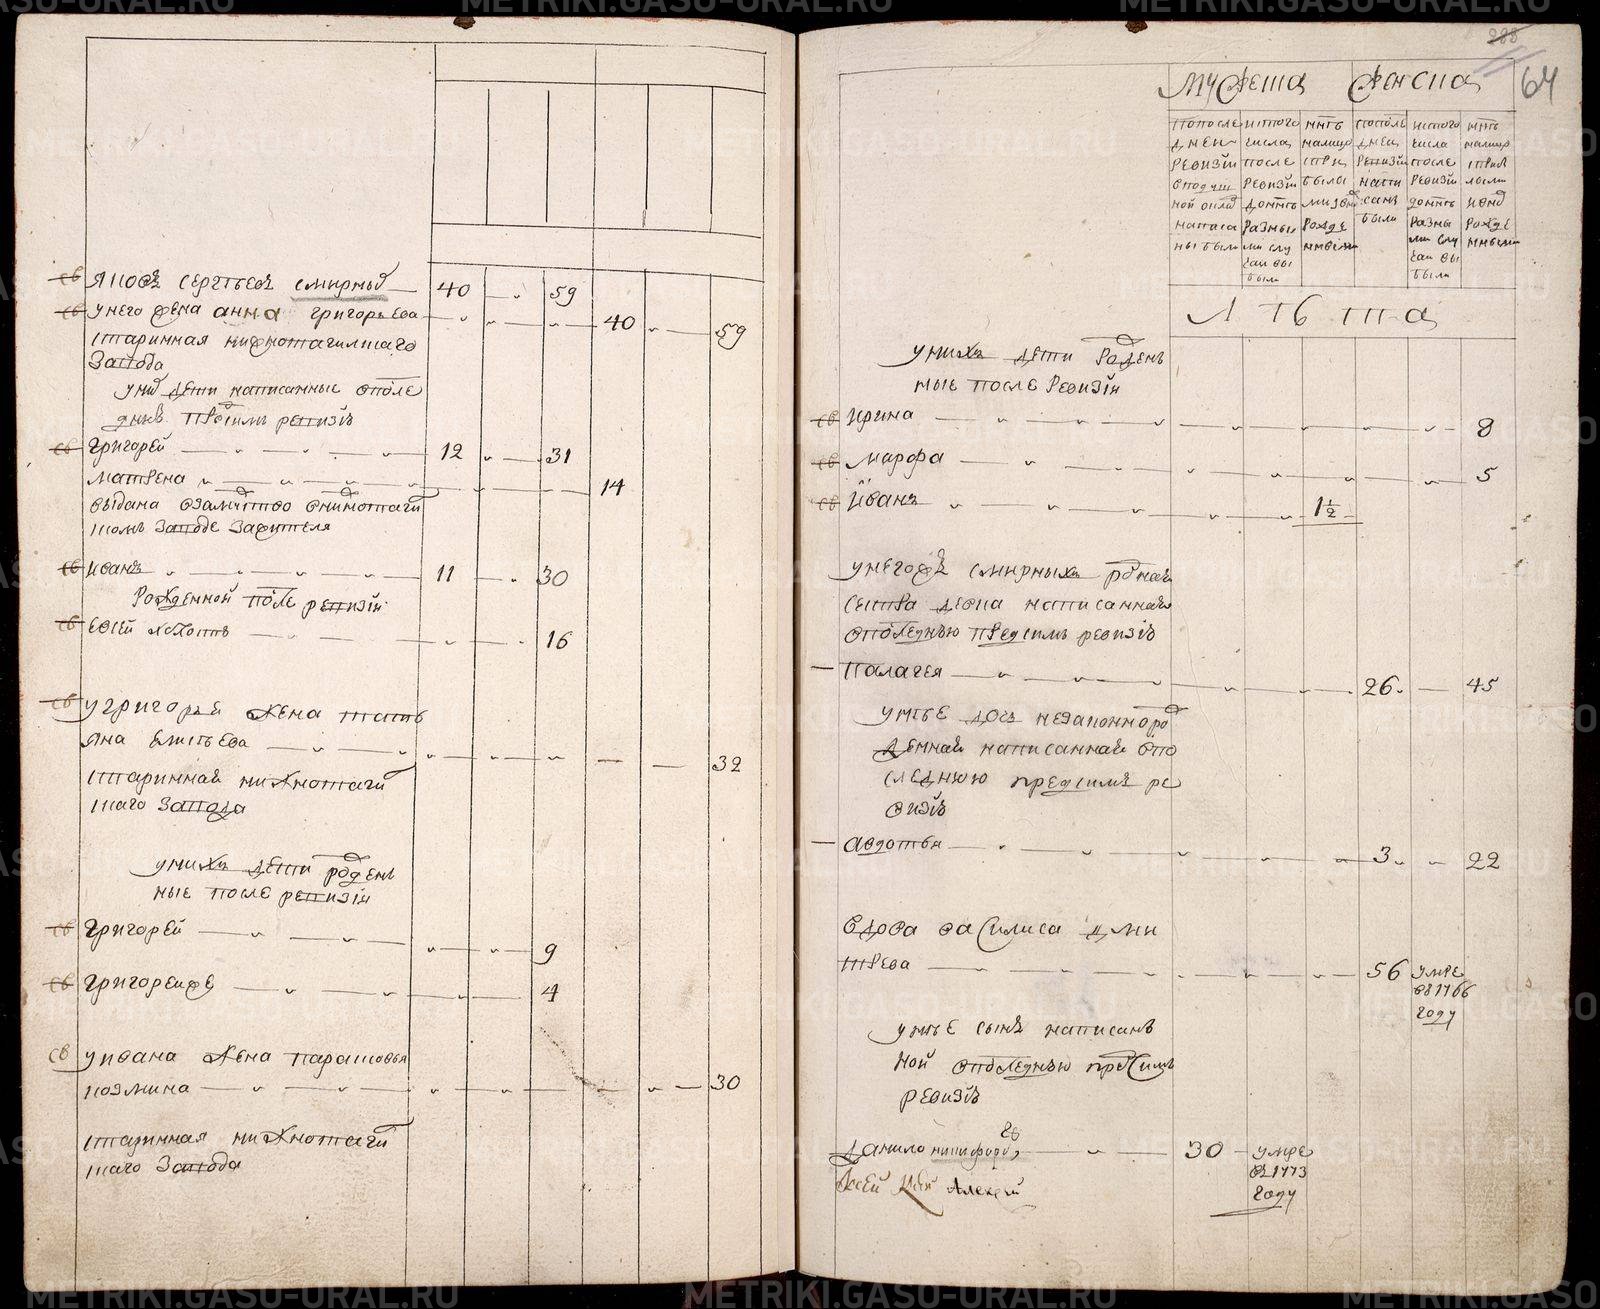 св Яковъ Сергѣевъ Смирных 40 59
св у него жена Анна Григорьева 40 59
старинная нижнотагилскаго
завода
у них дети написанные в после
днѣй пред сим ревизіѣ
св Григорей 12 31
Матрена 14
выдана в замужство в нижнотагил
ском заводе за жителя
св Иванъ 11 30
рожденной после ревизіи
св Евсей холостъ 16
св у Григорья жена Татъ
яна Елисѣева 32
старинная нижнотагил
скаго завода
у нихъ дети рожден
ные после ревизіи
св Григорей 9
св Григорей же 4
св у Ивана жена Парасковья
Козмина 30
старинная нижнотагил
скаго завода
288
64
мужеска женска
по после
дней
ревизіи
в подуш
ной оклад
написа
ны были
ис того
числа
после
ревизіи
до нынѣ
разны
ми слу
чаи вы
было
нынѣ
налицо
с при
былы
ми и внов
рожде
нными
по после
дней
ревизіи
напи
саны
были
ис того
числа
после
ревизіи
до нынѣ
разны
ми слу
чаи вы
было
нынѣ
налицо
с приб
лыми
и внов
рожде
нными
лѣта
у нихъ дети рожден
ные после ревизіи
св Ирина 8
св Марфа 5
св Иванъ 1½
у него жъ Смирныхъ родная
сестра девка написанная
в последнюю пред симъ ревизіѣ
Палагея 26 45
у нѣе дочь незаконнорож
денная написанная в по
следнюю пред симъ ре
визіѣ
Авдотья 3 22
вдова Василиса Дми
трева 56 умре
въ 1766
году
у нѣе сынъ написан
ной в последнюю пред симъ
ревизіѣ
Данило Никифоровъ 30 умре
въ 1773
году
Алексей
METRIKI.GASO-URAL.RU